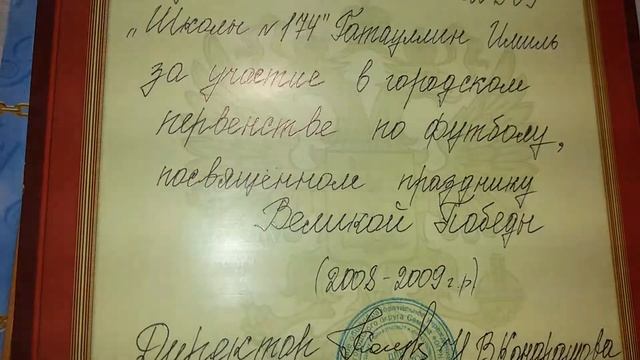 „Школы №174" Гатауллин Имиль
за участие в городском
первенстве по футболу,
посвящённом празднику
Великой Победы
(2008-2009г.р)
Директор Н В Кондрашова